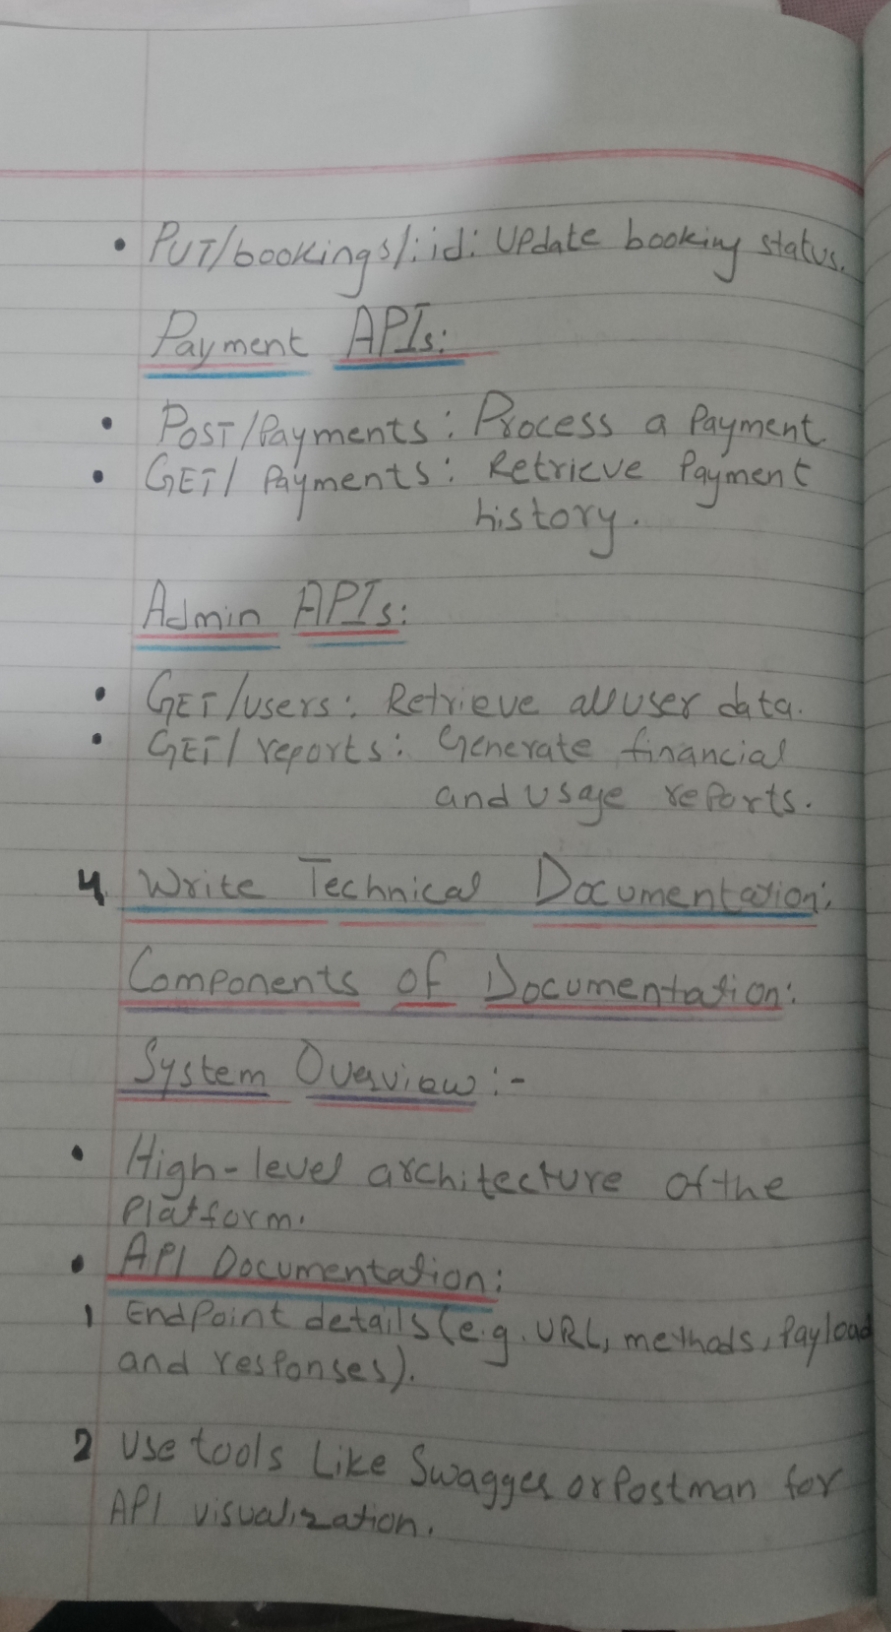 • PUT/bookings/:id: Update booking status.
Payment APIs:
• POST/Payments: Process a Payment
• GET/ Payments: Retrieve Payment
history.
Admin APIs:
• GET/users: Retrieve all user data.
• GET/ reports: Generate financial
and usage reports.
4. Write Technical Documentation:
Components of Documentation:
System Overview:-
• High-level architecture of the
Platform.
• API Documentation:
1 Endpoint details (e.g. URL, methods, Payload
and responses).
2 Use tools Like Swagger or Postman for
API visualization.